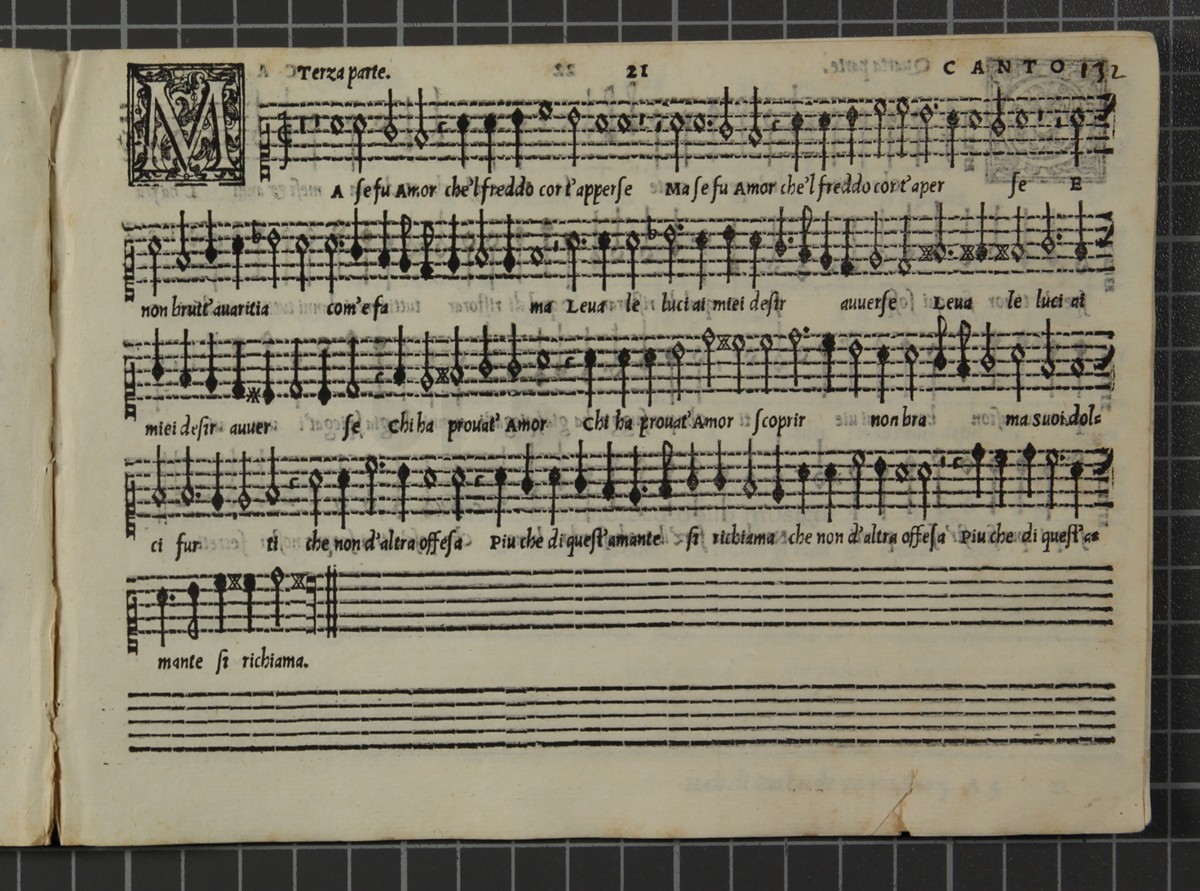 Terza parte. 21 CANTO 132
MA se fu Amor che'l freddo cor t'apperse Ma se fu Amor che'l freddo cor t'aper se E
non brutt'auaritia com'e fa ma Leua le luci ai miei desir auuerse Leua le luci ai
miei desir auuer se Chi ha prouat' Amor Chi ha prouat' Amor scoprir non bra ma suoi dol=
ci fur ti che non d'altra offesa Piu che di quest'amante si richiama che non d'altra offesa Piu che di quest'a=
mante si richiama.